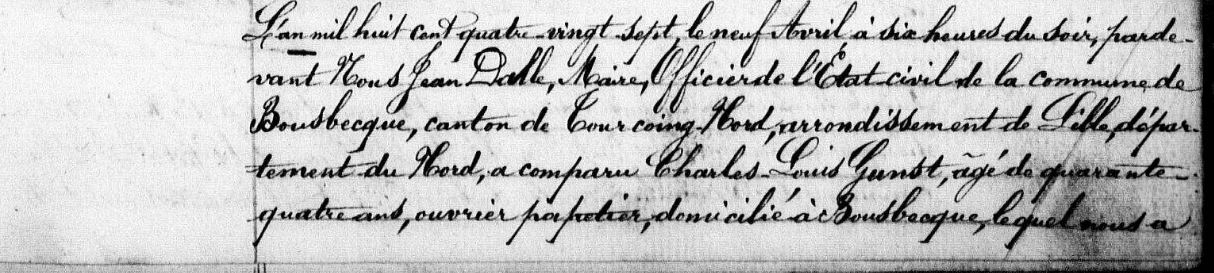 L'an mil huit cent quatre-vingt-sept, le neuf Avril à six heures du soir, parde-
vant Nous Jean Dalle, Maire, Officier de l'Etat-civil de la commune de
Bousbecque, canton de Tourcoing-Nord, arrondissement de Lille, dépar-
tement du Nord, a comparu Charles-Louis Gunst, âgé de quarante-
quatre ans, ouvrier papetier, domicilié à Bousbecque, lequel nous a